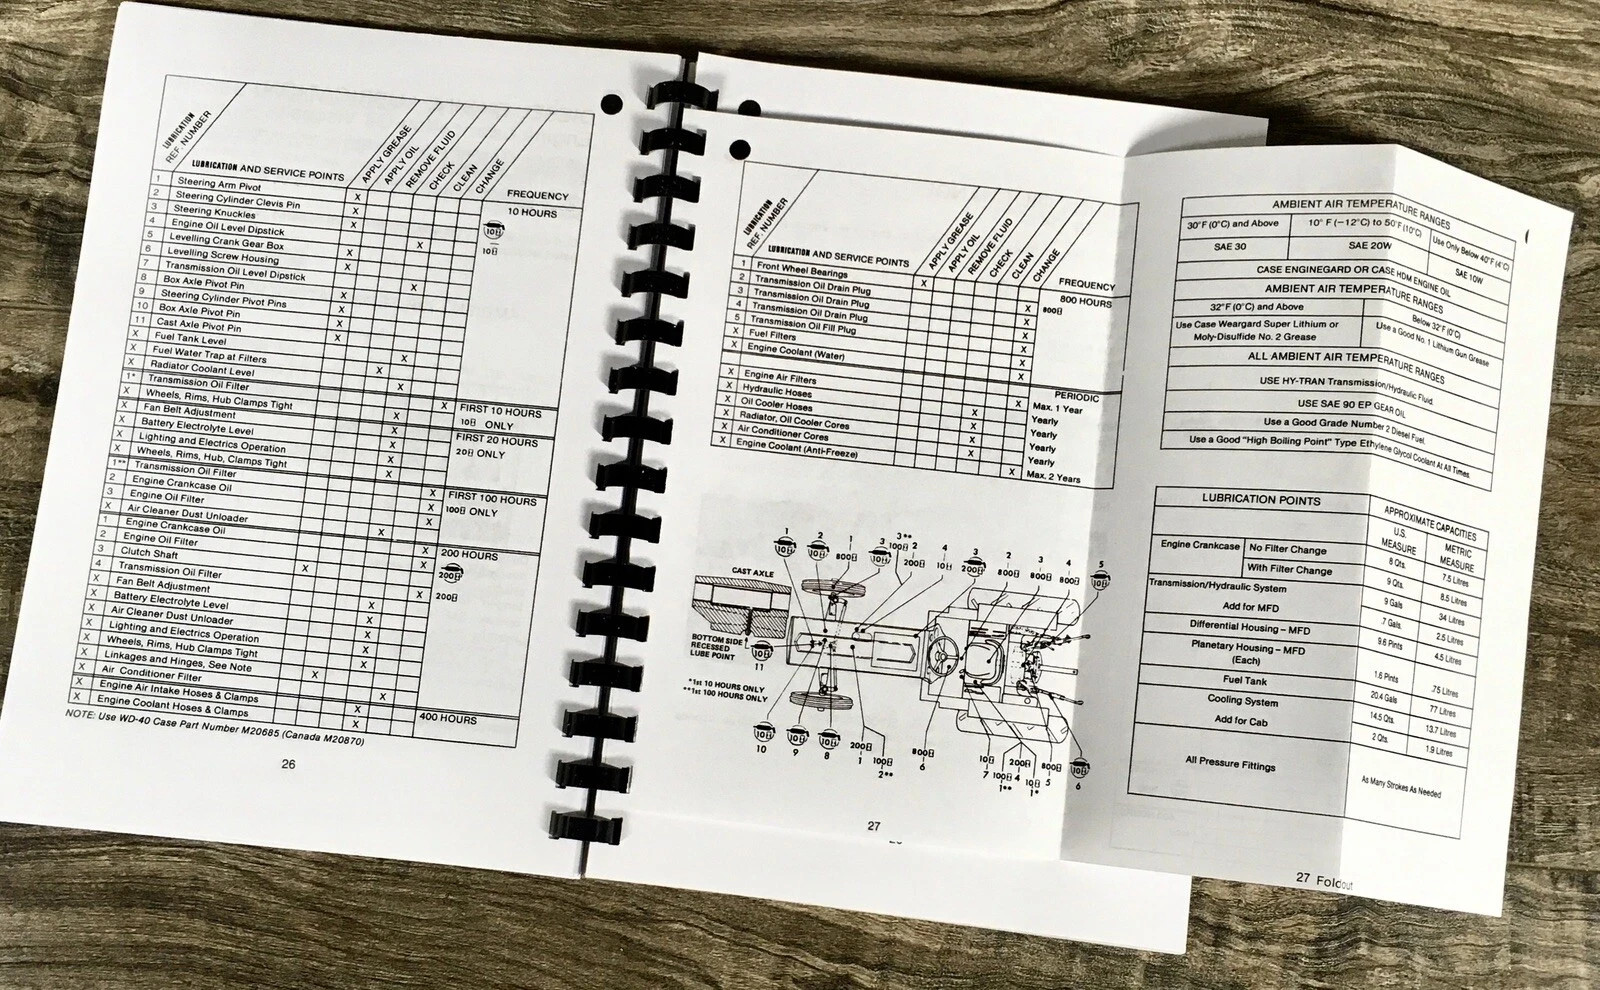 LUBRICATION REF. NUMBER
LUBRICATION AND SERVICE POINTS
APPLY GREASE
APPLY OIL
REMOVE FLUID
CHECK
CLEAN
CHANGE
FREQUENCY
1 Steering Arm Pivot X 10 HOURS
2 Steering Cylinder Clevis Pin X
3 Steering Knuckles X
4 Engine Oil Level Dipstick X
5 Levelling Crank Gear Box X
6 Levelling Screw Housing X
7 Transmission Oil Level Dipstick X
8 Box Axle Pivot Pin X
9 Steering Cylinder Pivot Pins X
10 Box Axle Pivot Pin X
11 Cast Axle Pivot Pin X
X Fuel Tank Level X
X Fuel Water Trap at Filters X
X Radiator Coolant Level X
1* Transmission Oil Filter X FIRST 10 HOURS
X Wheels, Rims, Hub Clamps Tight X 10H ONLY
X Fan Belt Adjustment X FIRST 20 HOURS
X Battery Electrolyte Level X 20H ONLY
X Lighting and Electrics Operation X
X Wheels, Rims, Hub, Clamps Tight X
1** Transmission Oil Filter X FIRST 100 HOURS
2 Engine Crankcase Oil X 100H ONLY
3 Engine Oil Filter X
X Air Cleaner Dust Unloader X
1 Engine Crankcase Oil X 200 HOURS
2 Engine Oil Filter X
3 Clutch Shaft X 200H
4 Transmission Oil Filter X 200H
X Fan Belt Adjustment X
X Battery Electrolyte Level X
X Air Cleaner Dust Unloader X
X Lighting and Electrics Operation X
X Wheels, Rims, Hub Clamps Tight X
X Linkages and Hinges, See Note X
X Air Conditioner Filter X
X Engine Air Intake Hoses & Clamps X 400 HOURS
X Engine Coolant Hoses & Clamps X
NOTE: Use WD-40 Case Part Number M20685 (Canada M20870)
26
LUBRICATION REF. NUMBER
LUBRICATION AND SERVICE POINTS
APPLY GREASE
APPLY OIL
REMOVE FLUID
CHECK
CLEAN
CHANGE
FREQUENCY
1 Front Wheel Bearings X 800 HOURS
2 Transmission Oil Drain Plug X 800H
3 Transmission Oil Drain Plug X
4 Transmission Oil Drain Plug X
5 Transmission Oil Fill Plug X
X Fuel Filters X
X Engine Coolant (Water) X
PERIODIC
X Engine Air Filters X Max. 1 Year
X Hydraulic Hoses X Yearly
X Oil Cooler Hoses X Yearly
X Radiator, Oil Cooler Cores X Yearly
X Air Conditioner Cores X Yearly
X Engine Coolant (Anti-Freeze) X Max. 2 Years
CAST AXLE
BOTTOM SIDE
RECESSED
LUBE POINT
11
*1st 10 HOURS ONLY
**1st 100 HOURS ONLY
27
AMBIENT AIR TEMPERATURE RANGES
30°F (0°C) and Above
10°F (−12°C) to 50°F (10°C)
Use Only Below 40°F (4°C)
SAE 30
SAE 20W
SAE 10W
CASE ENGINEGARD OR CASE HDM ENGINE OIL
AMBIENT AIR TEMPERATURE RANGES
32°F (0°C) and Above
Below 32°F (0°C)
Use Case Weargard Super Lithium or
Moly-Disulfide No. 2 Grease
Use a Good No. 1 Lithium Gun Grease
ALL AMBIENT AIR TEMPERATURE RANGES
USE HY-TRAN Transmission/Hydraulic Fluid.
USE SAE 90 EP GEAR OIL
Use a Good Grade Number 2 Diesel Fuel.
Use a Good "High Boiling Point" Type Ethylene Glycol Coolant At All Times.
LUBRICATION POINTS
APPROXIMATE CAPACITIES
U.S. MEASURE
METRIC MEASURE
Engine Crankcase No Filter Change 8 Qts. 7.5 Litres
With Filter Change 9 Qts. 8.5 Litres
Transmission/Hydraulic System 9 Gals 34 Litres
Add for MFD .7 Gals. 2.5 Litres
Differential Housing – MFD 9.6 Pints 4.5 Litres
Planetary Housing – MFD
(Each) 1.6 Pints .75 Litres
Fuel Tank 20.4 Gals 77 Litres
Cooling System 14.5 Qts. 13.7 Litres
Add for Cab 2 Qts. 1.9 Litres
All Pressure Fittings As Many Strokes As Needed
27 Foldout